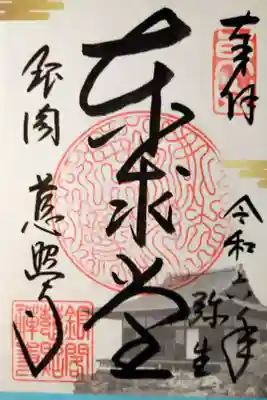 奉拝
令和六年
弥生
東求堂
銀閣 慈照寺